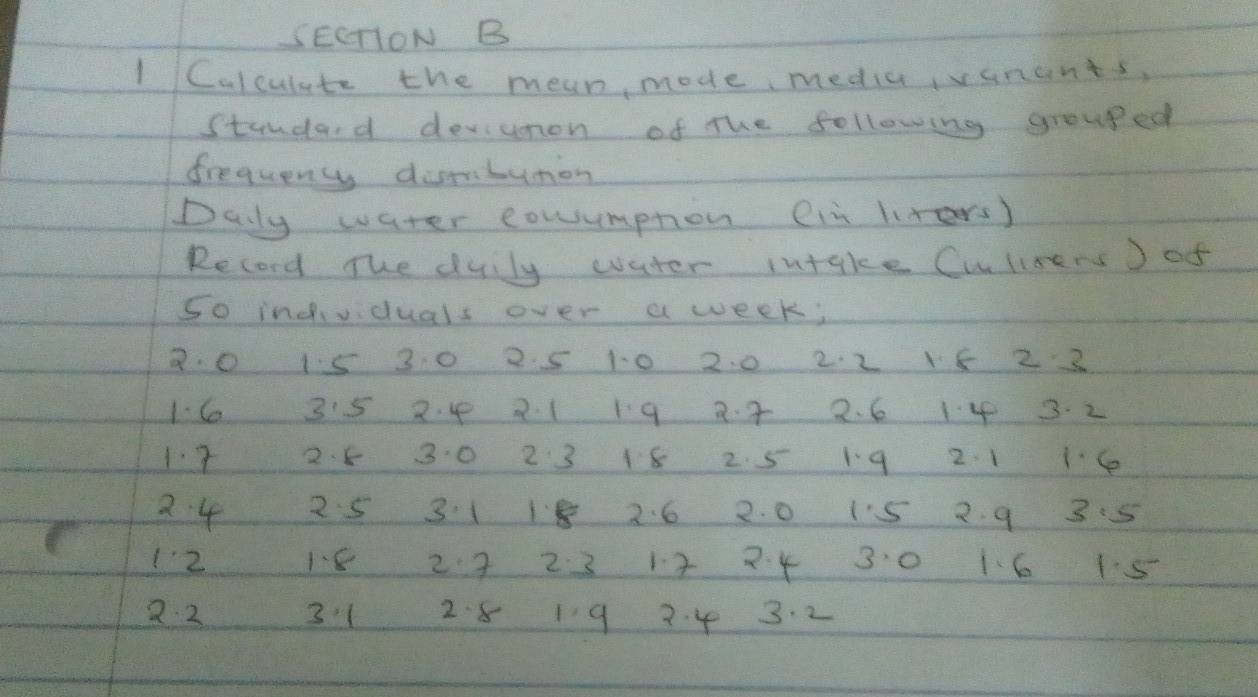 SECTION B
1 Calculate the mean, mode, media, variants,
Standard deviation of the following grouped
frequency distribution
Daily water consumption (in liters)
Record the daily water intake (in liters) of
50 individuals over a week;
2.0 1.5 3.0 2.5 1.0 2.0 2.2 1.8 2.3
1.6 3.5 2.4 2.1 1.9 2.7 2.6 1.4 3.2
1.7 2.8 3.0 2.3 1.8 2.5 1.9 2.1 1.6
2.4 2.5 3.1 1.8 2.6 2.0 1.5 2.9 3.5
1.2 1.8 2.7 2.3 1.7 2.4 3.0 1.6 1.5
2.2 3.1 2.8 1.9 2.4 3.2